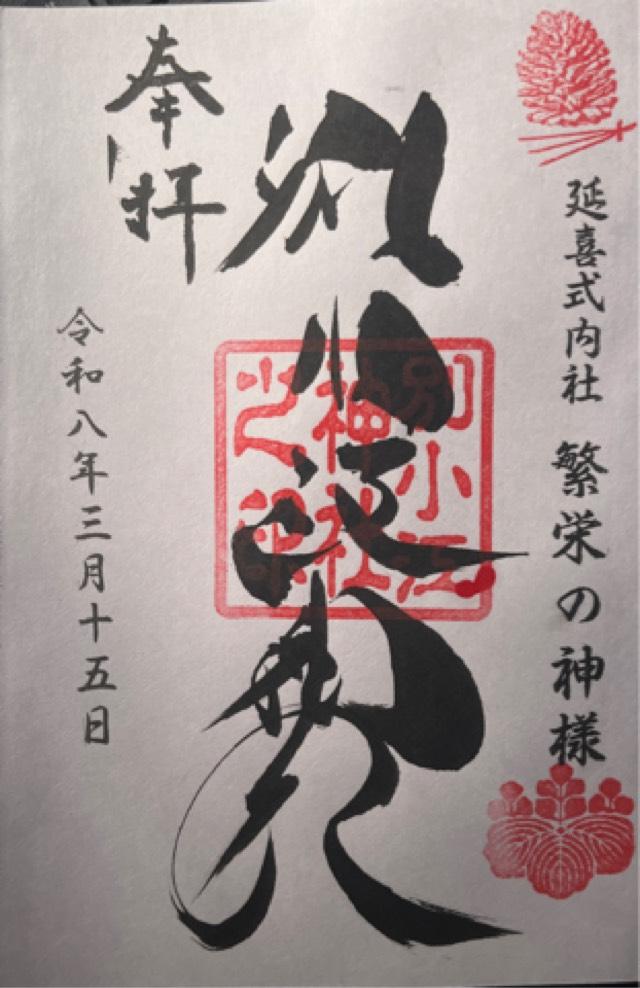 延喜式内社 繁栄の神様
別小江神社
別小江
神社
之印
奉拝
令和八年三月十五日